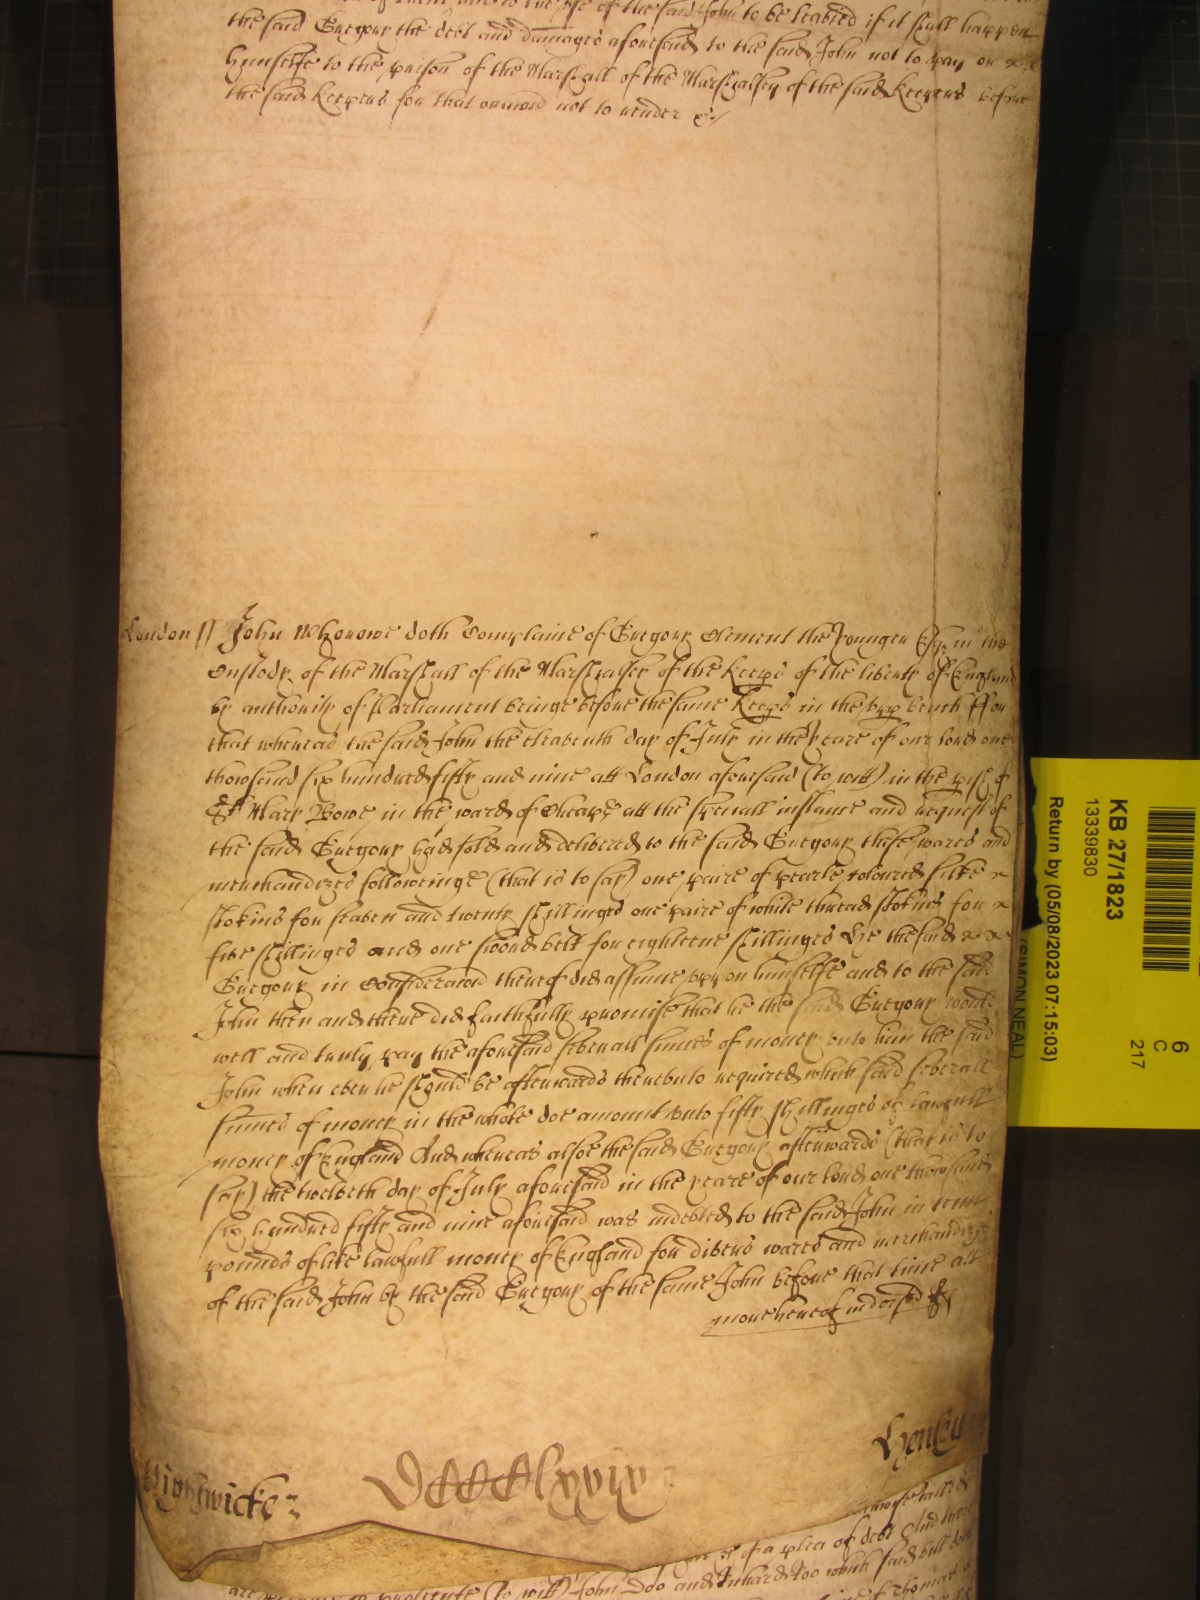 the use of the said John to be leavied if it shall happen
the said Gregory the debt and damages aforesaid to the said John not to pay or
himselfe to the prison of the Marshall of the Marshalsey of the said keepers before
the said keepers for that onward not to render &c/
London // John Morowe doth Complaine of Gregory Clement the younger Esqr in the
Custody of the Marshall of the Marshalsey of the keeps of the liberty of England
by authority of Parliament beinge before the same keeps in the upp bench ffor
that whereas the said John the eleaventh day of July in the yeare of our lord one
thowsand six hundred fifty and nine att London aforesaid (to witt) in the pish of
St Mary Bowe in the ward of Cheape att the speciall instance and request of
the said Gregory had sold and delivered to the said Gregory these wares and
merchandizes followeinge (that is to say) one paire of pearle coloured silke
stokins for seaven and twenty shillinges one paire of white thread stokins for
five shillinges and one sword belt for eighteene shillinges He the said
Gregory in consideracon thereof did assume uppon himselfe and to the said
John then and there did faithfully promise that he the said Gregory would
well and truly pay the aforesaid severall summes of money unto him the said
John when ever he should be afterwards thereunto required which said severall
summes of money in the whole doe amount unto fifty shillinges of lawfull
money of England And whereas alsoe the said Gregory afterwards (that is to
say) the twelveth day of July aforesaid in the yeare of our lord one thowsand
six hundred fifty and nine aforesaid was indebted to the said John in tenn
pounds of like lawfull money of England for divers wares and merchandizes
of the said John by the said Gregory of the same John before that time att
more hereof indorsed
Wightwicke
DCCCClxxix
Henley
of a plea of debt And
prosecute (to witt) John Doo and Richard Roo which said bill
of Thomas
KB 27/1823
13339830
Return by (05/08/2023 07:15:03)
(SIMON NEAL)
6
C
217